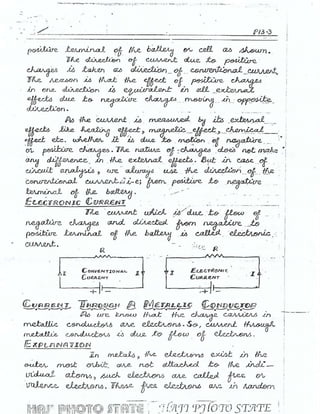 P13-3
positive terminal of the battery or cell as shown.
The direction of current due to positive
charges is taken as direction of conventional current.
The reason is that the effect of positive charges
in one direction is equivalent in all external
effects due to negative charges moving in opposite
direction.
As the current is measured by its external
effects like heating effect, magnetic effect, chemical
effect etc. whether it is due to motion of negative
or positive charges. The nature of charges does not make
any difference in the external effects. But in case of
circuit analysis, we always use the direction of the
conventional current i-e; from positive to negative
terminal of the battery.
ELECTRONIC CURRENT
The current which is due to flow of
negative charges and directed from negative to
positive terminal of the battery is called electronic
current.
R R
I CONVENTIONAL I I ELECTRONIC I
CURRENT CURRENT
+ - + -
CURRENT THROUGH A METALLIC CONDUCTOR
As we know that the charge carriers in
metallic conductors are electrons. So, current through
metallic conductors is due to flow of electrons.
EXPLANATION
In metals, the electrons exist in the
outer most orbit are not attached to the indi-
vidual atoms, such electrons are called free or
valence electrons. These free electrons are in random
HAJI PHOTO STATE HAJI PHOTO STATE